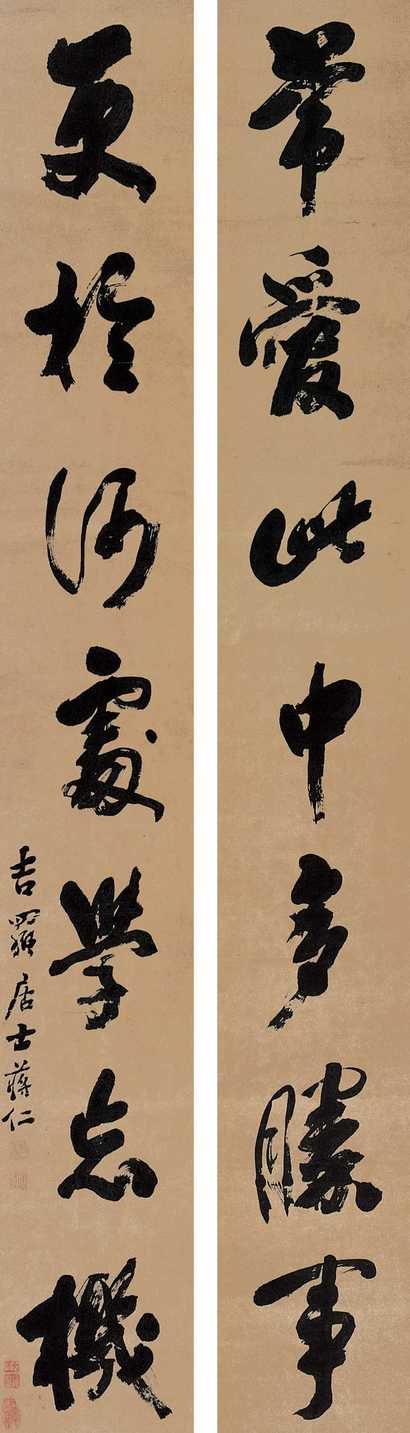 常愛此中多勝事
更於何處學忘機
吉羅居士蔣仁